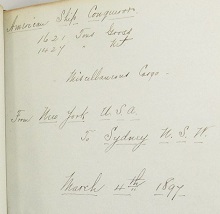 American Ship Conqueror
1621 Tons Gross
1427 " Net
Miscellaneous Cargo -
From New York U.S.A.
To Sydney N.S.W.
March 4th 1897